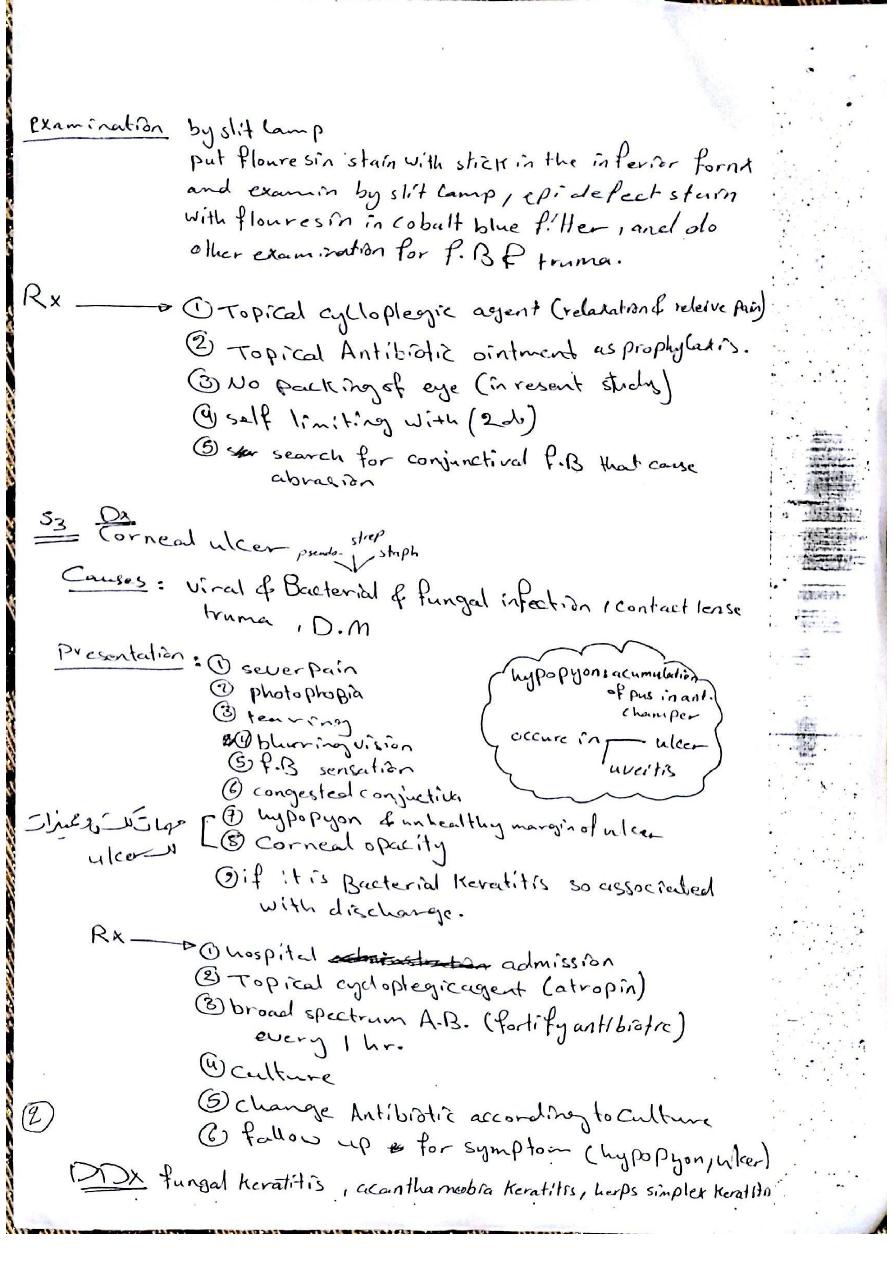 Examination by slit lamp
put flouresin stain with stick in the inferior fornx
and examin by slit lamp, epi defect stain
with flouresin in cobalt blue filter, and do
other examination for f.B & truma.
Rx → ① Topical cylloplegic agent (relaxation & releive pain)
② Topical Antibiotic ointment as prophylaxis.
③ No packing of eye (in resent study)
④ self limiting with (2d)
⑤ search for conjunctival f.B that cause
abrasion
S3 Dx
Corneal ulcer
pseudo- strep staph
Causes: viral & Bacterial & fungal infection, contact lense
truma, D.M
Presentation: ① sever pain
② photophobia
③ tearing
④ blurring vision
⑤ f.B sensation
⑥ congested conjuctiva
⑦ hypopyon & unhealthy margin of ulcer
⑧ Corneal opacity
مهمات
ulcer
⑨ if it is Bacterial Keratitis so associated
with discharge.
hypopyon: acumulation
of pus in ant.
champer
occure in ulcer
uveitis
Rx → ① hospital admission
② Topical cycloplegic agent (atropin)
③ broad spectrum A.B. (fortify antibiotic)
every 1 hr.
④ culture
⑤ change Antibiotic according to culture
⑥ follow up for symptom (hypopyon, ulcer)
②
DDx fungal keratitis, acanthamoebia keratitis, herps simplex keratitis